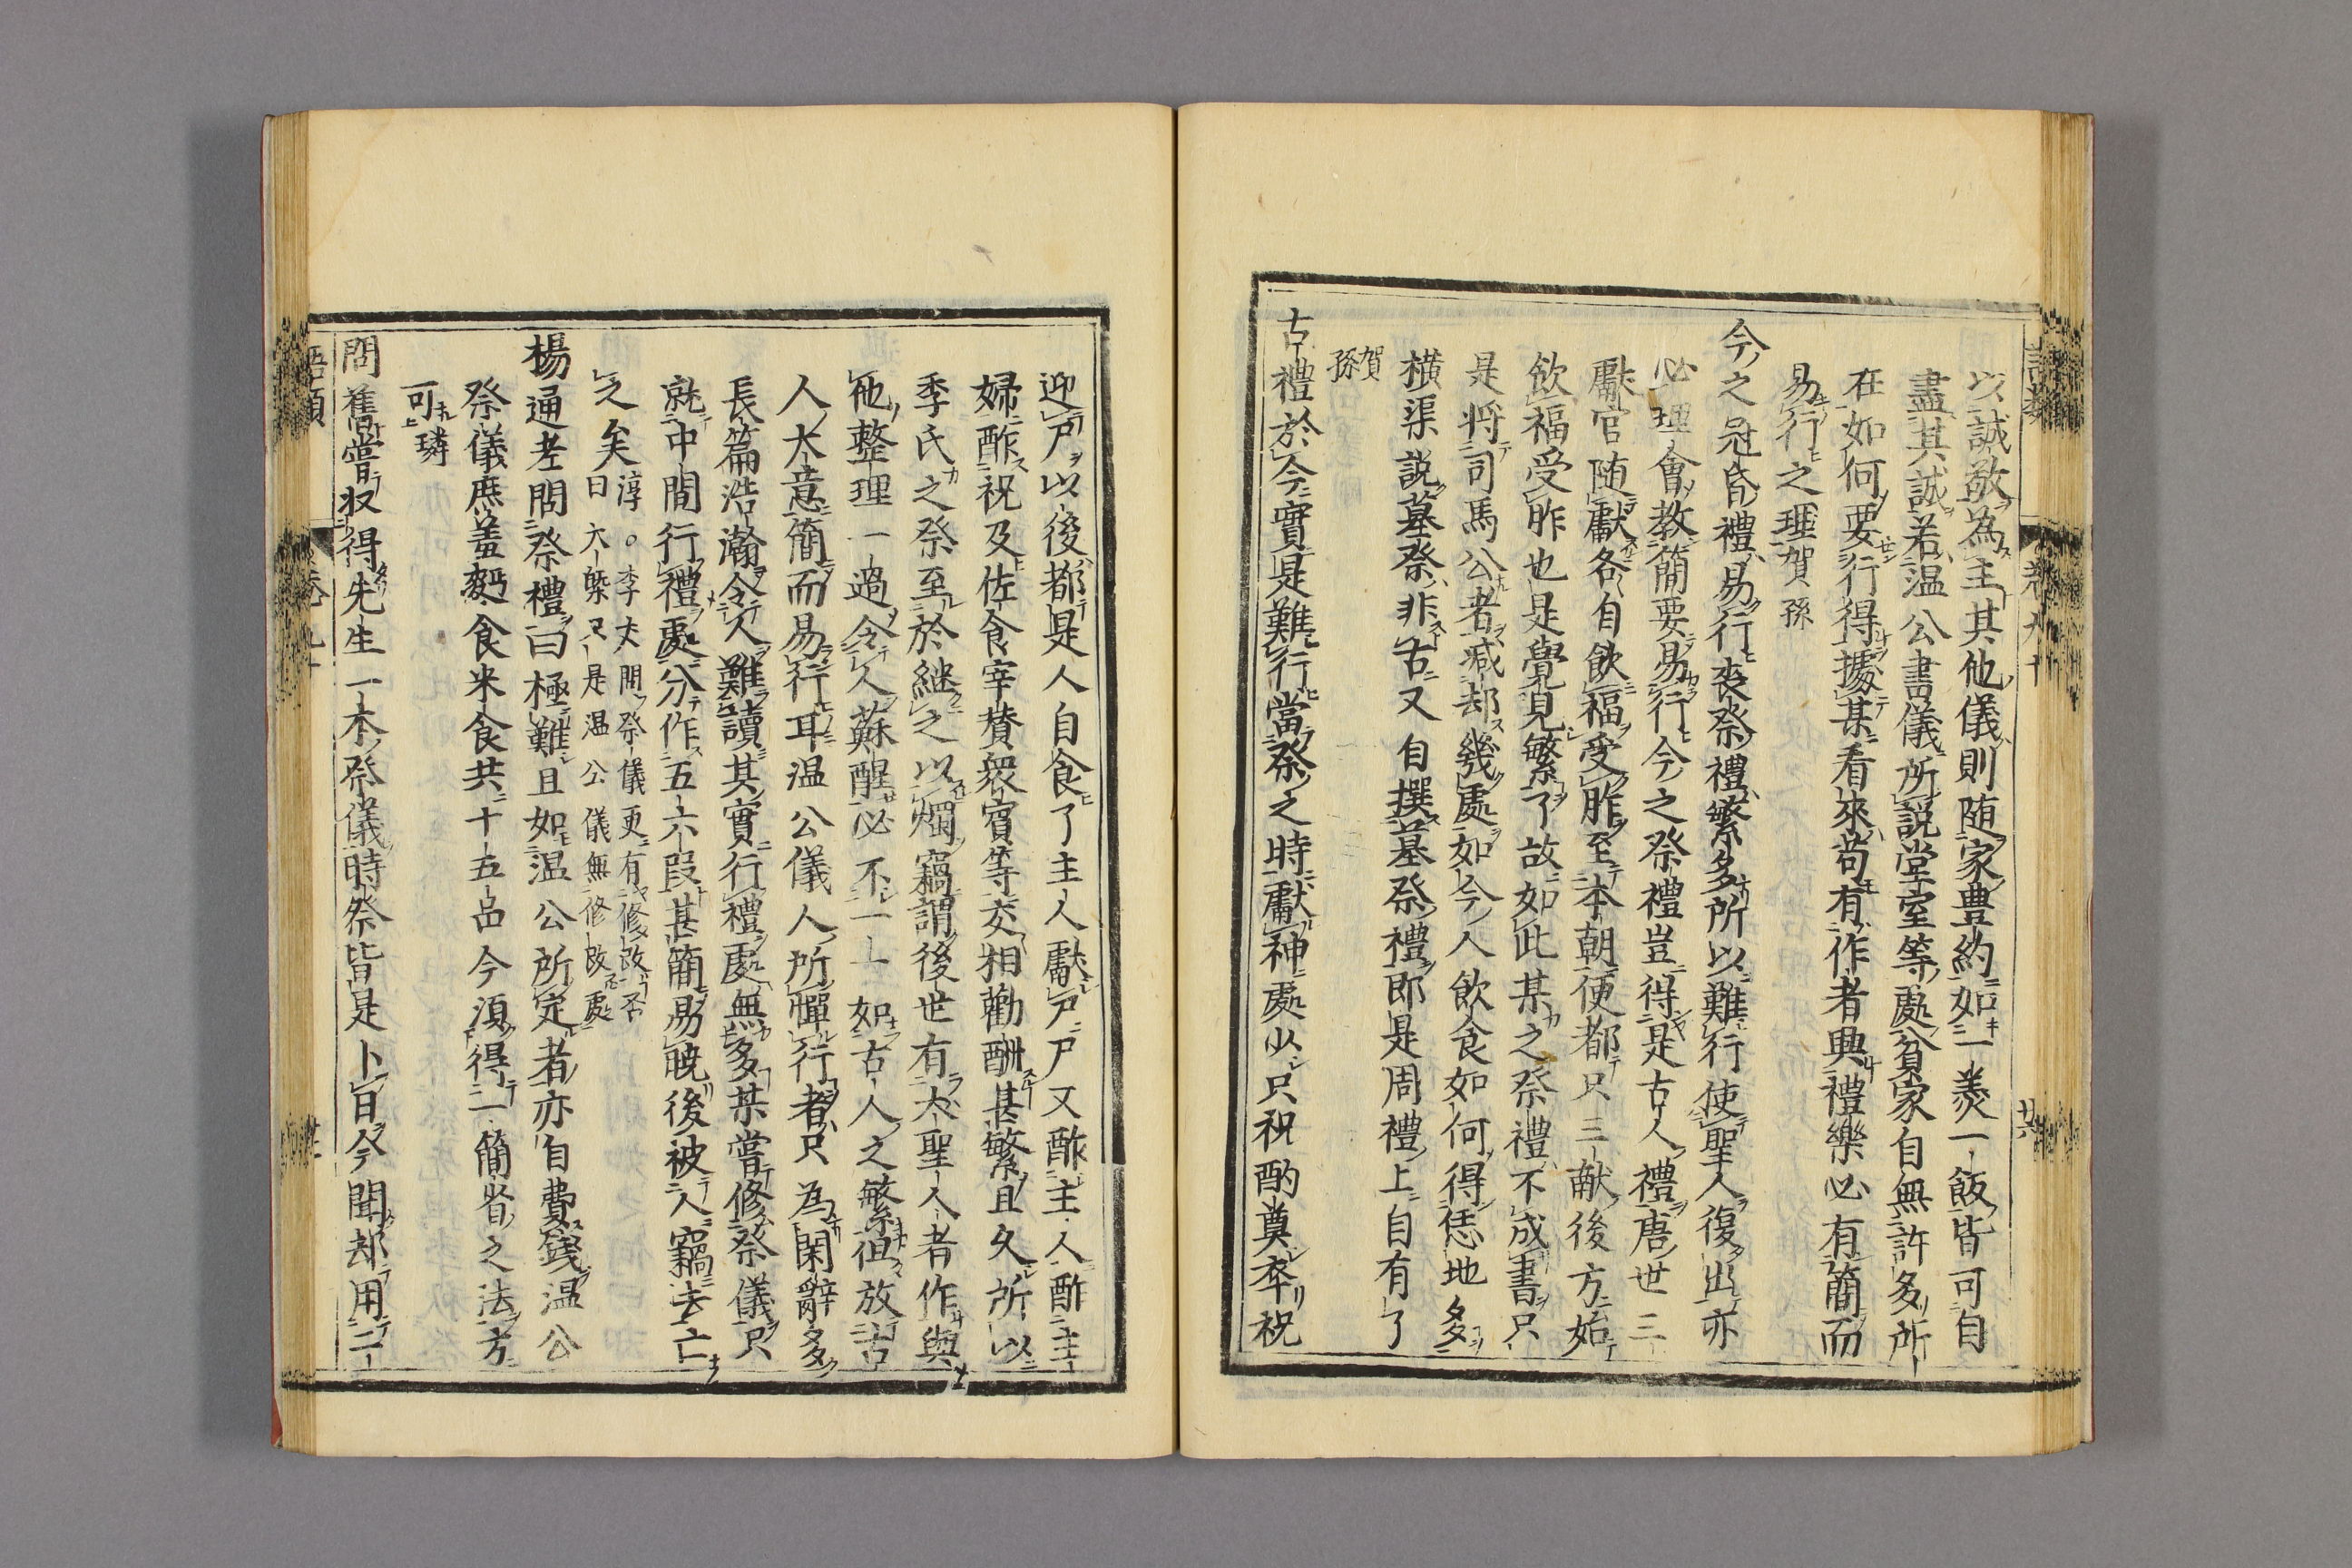 以誠敬為主其他儀則随家豊約如一羹一飯皆可自
盡其誠若温公書儀所説堂室等處貧家自無許多所
在如何要行得據某看來苟有作者興禮樂必有簡而
易行之理賀孫
今之冠昏禮易行喪祭禮繁多所以難行使聖人復出亦
必理會教簡要易行今之祭禮豈得是古人禮唐世三
獻官随獻各自飲福受胙至本朝便都只三献後方始
飲福受胙也是覺見繁了故如此某之祭禮不成書只
是将司馬公者減却幾處如今人飲食如何得恁地多
横渠説墓祭非古又自撰墓祭禮即是周禮上自有了
賀孫
古禮於今實是難行當祭之時獻神處少只祝酌奠卒祝
迎尸以後都是人自食了主人獻尸尸又酢主人酢主
婦酢祝及佐食宰賛衆賓等交相勸酬甚繁且久所以
季氏之祭至於継之以燭竊謂後世有大聖人者作與
他整理一過令人蘇醒必不一一如古人之繁但放古
人大意簡而易行耳温公儀人所憚行者只為閑辭多
長篇浩瀚令人難讀其實行禮處無多某嘗修祭儀只
就中間行禮處分作五六段甚簡易曉後被人竊去亡
之矣淳○李丈問祭儀更有修改否
曰大槩只是温公儀無修改處
楊通老問祭禮曰極難且如温公所定者亦自費錢温公
祭儀庶羞麪食米食共十五品今須得一簡省之法方
可璘
問舊嘗収得先生一本祭儀時祭皆是卜日今聞却用二
語類
卷九十
廿六